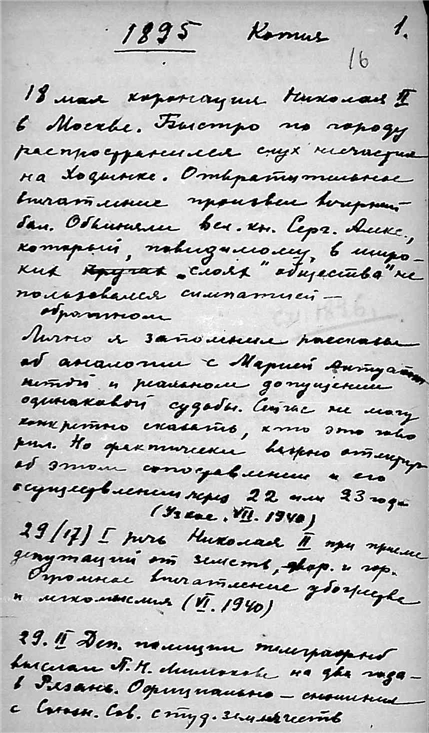 1895 Копия 1.
16
18 мая коронация Николая II
в Москве. Быстро по городу
распространился слух несчастия
на Ходынке. Отвратительное
впечатление произвел вечерний
бал. Обвиняли вел. кн. Серг. Алекс.,
который, повидимому, в широ-
ких кругах „слоях" „общества" не
пользовался симпатией —
обратном
Лично я запомнил рассказы
об аналогии с Марией Антуа-
неттой и реальном допущении
одинаковой судьбы. Сейчас не могу
конкретно сказать, кто это гово
рил. Но фактически важно отметить
об этом сопоставлении и его
осуществлении через 22 или 23 года
(Узкое. VII. 1940)
29/17) I речь Николая II при приеме
депутаций от земств, двор. и гор.
Огромное впечатление убожества
и легкомыслия (VI. 1940)
29. II Деп. полиции телеграфно
выслал П. Н. Милюкова на два года
в Рязань. Официально — сношения
с Союзн. Сов. студ. землячеств